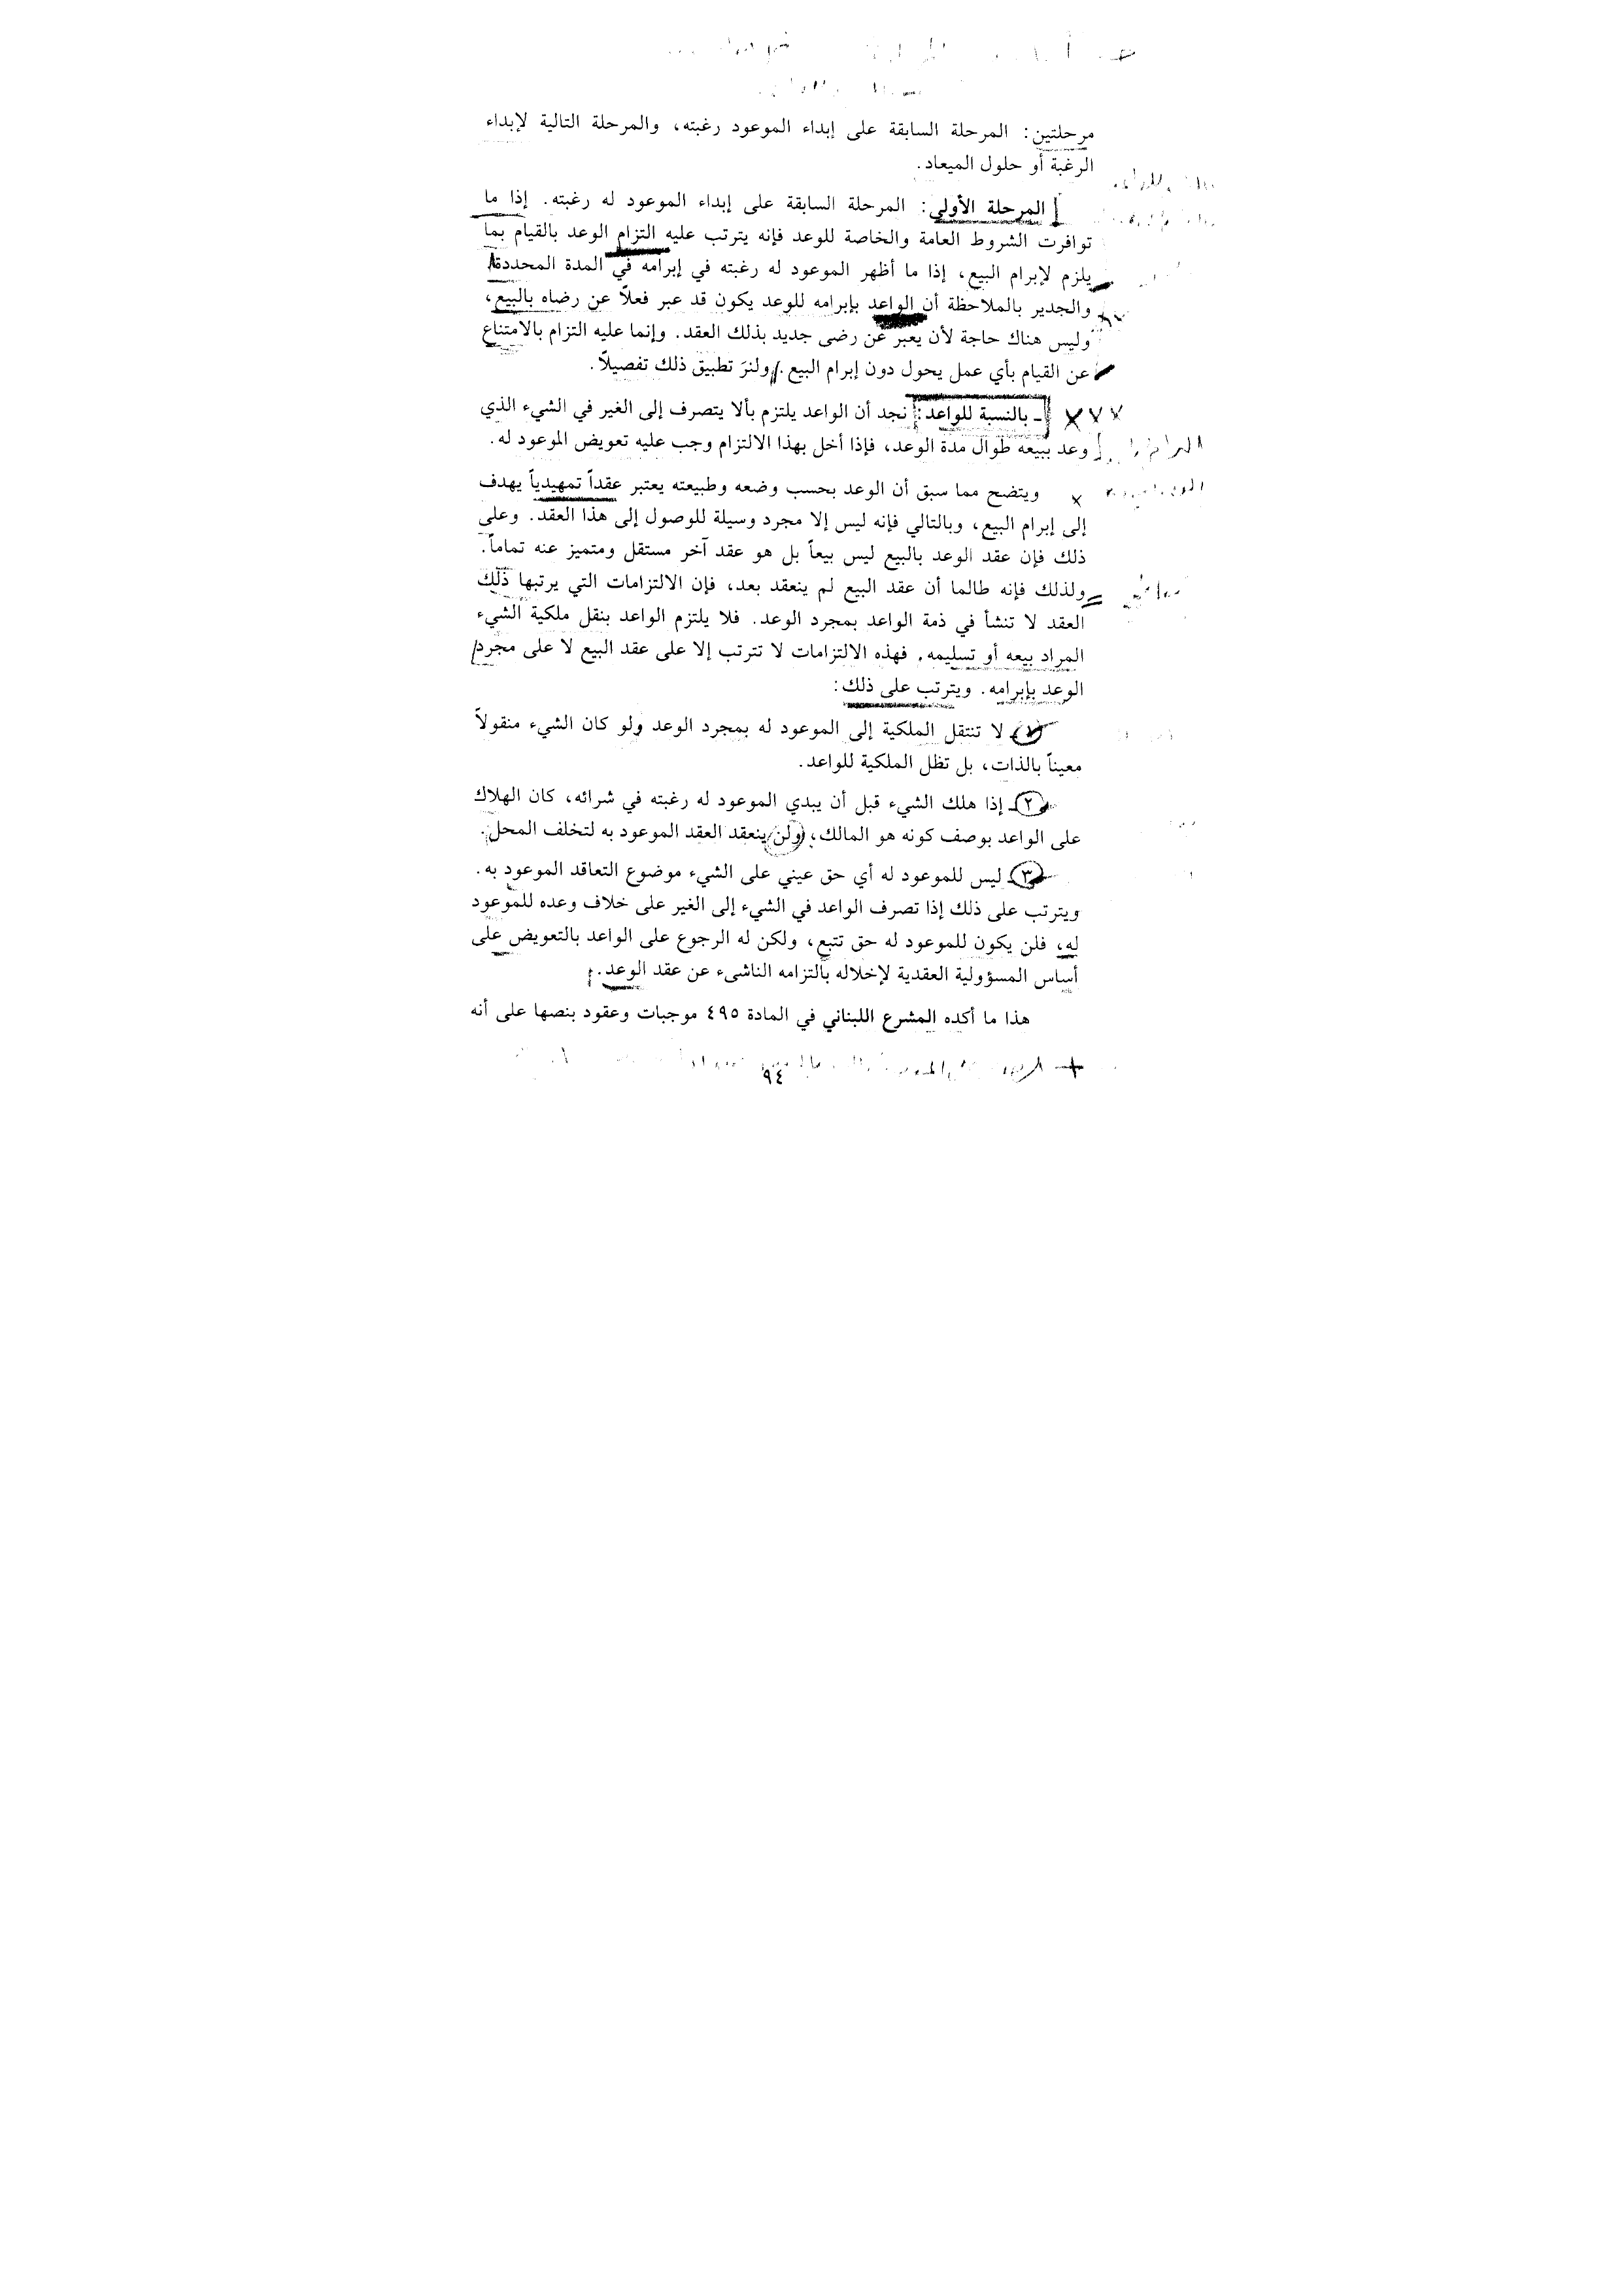 مرحلتين: المرحلة السابقة على إبداء الموعود رغبته، والمرحلة التالية لإبداء
الرغبة أو حلول الميعاد.
المرحلة الأولى: المرحلة السابقة على إبداء الموعود له رغبته. إذا ما
توافرت الشروط العامة والخاصة للوعد فإنه يترتب عليه التزام الوعد بالقيام بما
يلزم لإبرام البيع، إذا ما أظهر الموعود له رغبته في إبرامه في المدة المحددة
والجدير بالملاحظة أن الواعد بإبرامه للوعد يكون قد عبر فعلاً عن رضاه بالبيع،
وليس هناك حاجة لأن يعبر عن رضى جديد بذلك العقد. وإنما عليه التزام بالامتناع
عن القيام بأي عمل يحول دون إبرام البيع. ولنرَ تطبيق ذلك تفصيلاً.
ـ بالنسبة للواعد: نجد أن الواعد يلتزم بألا يتصرف إلى الغير في الشيء الذي
وعد ببيعه طوال مدة الوعد، فإذا أخل بهذا الالتزام وجب عليه تعويض الموعود له.
ويتضح مما سبق أن الوعد بحسب وضعه وطبيعته يعتبر عقداً تمهيدياً يهدف
إلى إبرام البيع، وبالتالي فإنه ليس إلا مجرد وسيلة للوصول إلى هذا العقد. وعلى
ذلك فإن عقد الوعد بالبيع ليس بيعاً بل هو عقد آخر مستقل ومتميز عنه تماماً.
ولذلك فإنه طالما أن عقد البيع لم ينعقد بعد، فإن الالتزامات التي يرتبها ذلك
العقد لا تنشأ في ذمة الواعد بمجرد الوعد. فلا يلتزم الواعد بنقل ملكية الشيء
المراد بيعه أو تسليمه. فهذه الالتزامات لا تترتب إلا على عقد البيع لا على مجرد
الوعد بإبرامه. ويترتب على ذلك:
١ـ لا تنتقل الملكية إلى الموعود له بمجرد الوعد ولو كان الشيء منقولاً
معيناً بالذات، بل تظل الملكية للواعد.
٢ـ إذا هلك الشيء قبل أن يبدي الموعود له رغبته في شرائه، كان الهلاك
على الواعد بوصف كونه هو المالك، ولن ينعقد العقد الموعود به لتخلف المحل.
٣ـ ليس للموعود له أي حق عيني على الشيء موضوع التعاقد الموعود به.
ويترتب على ذلك إذا تصرف الواعد في الشيء إلى الغير على خلاف وعده للموعود
له، فلن يكون للموعود له حق تتبع، ولكن له الرجوع على الواعد بالتعويض على
أساس المسؤولية العقدية لإخلاله بالتزامه الناشىء عن عقد الوعد.
هذا ما أكده المشرع اللبناني في المادة ٤٩٥ موجبات وعقود بنصها على أنه
٩٤